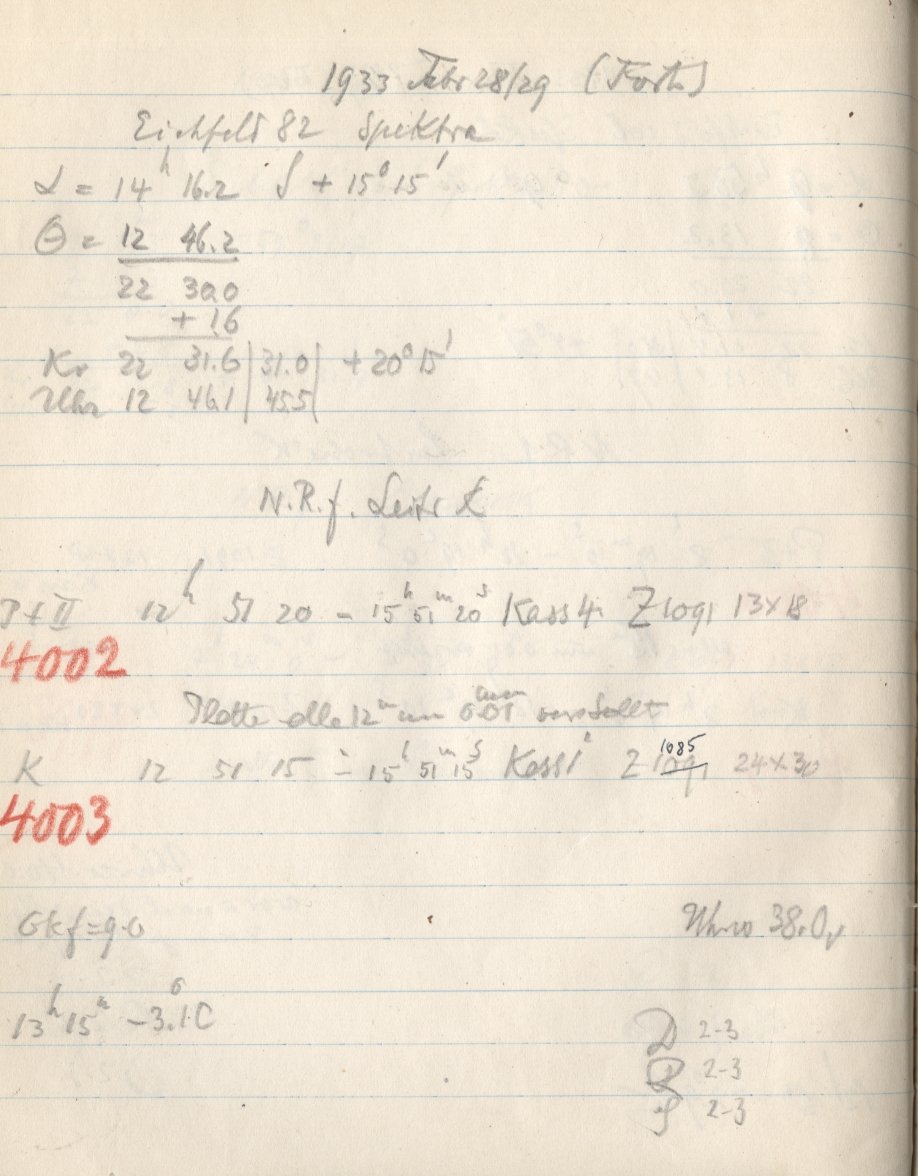 1933 Febr 28/29 (Forts)
Eichfeld 82 Spektra
α = 14h 16.2 δ + 15° 15'
θ = 12 46.2
22 30.0
+ 1.6
Kr 22 31.6 | 31.0 | + 20° 15'
Uhr 12 46.1 | 45.5 |
N.R.f. Leitr K
I + II 12h 51 20 - 15h 51m 20s Kass 4 Z 1091 13 x 18
4002
Platte alle 12m um 0.01mm verstellt
K 12 51 15 - 15h 51m 15s Kass 1 Z 1091 1085 24 x 30
4003
Okf = 9.0
Uhr 38.0
13h 15m -3.1° C
D 2-3
R 2-3
S 2-3